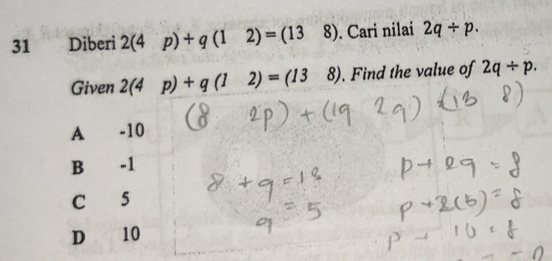 31 Diberi 2(4 p) + q (1 2) = (13 8). Cari nilai 2q ÷ p.
Given 2(4 p) + q (1 2) = (13 8). Find the value of 2q ÷ p.
(8 2p) + (1q 2q) = (13 8)
A -10
B -1
C 5
D 10
8 + q = 13
q = 5
p + 2q = 8
p + 2(5) = 8
p + 10 = 8